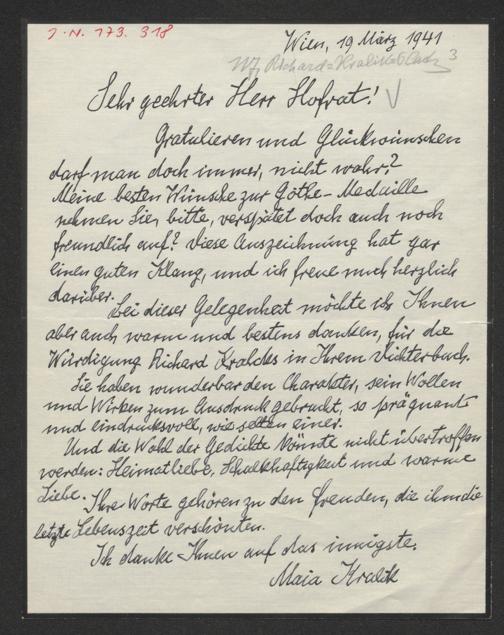 J.N. 173.318
Wien, 19 März 1941
Wf, Richard=Kralik= 3
Sehr geehrter Herr Hofrat!
Gratulieren und Glückwünschen
darf man doch immer, nicht wahr?
Meine besten Wünsche zur Göthe-Medaille
nehmen Sie, bitte, verspätet doch auch noch
freundlich auf? Diese Auszeichnung hat gar
einen guten Klang, und ich freue mich herzlich
darüber.
Bei dieser Gelegenheit möchte ich Ihnen
aber auch warm und bestens danken, für die
Würdigung Richard Kraliks in Ihrem Dichterbuch.
Sie haben wunderbar den Charakter, sein Wollen
und Wirken zum Ausdruck gebracht, so prägnant
und eindrucksvoll, wie selten einer.
Und die Wahl der Gedichte könnte nicht übertroffen
werden: Heimatliebe, Schalkhaftigkeit und warme
Liebe.
Ihre Worte gehören zu den Freuden, die ihm die
letzte Lebenszeit verschönten.
Ich danke Ihnen auf das innigste.
Maia Kralik